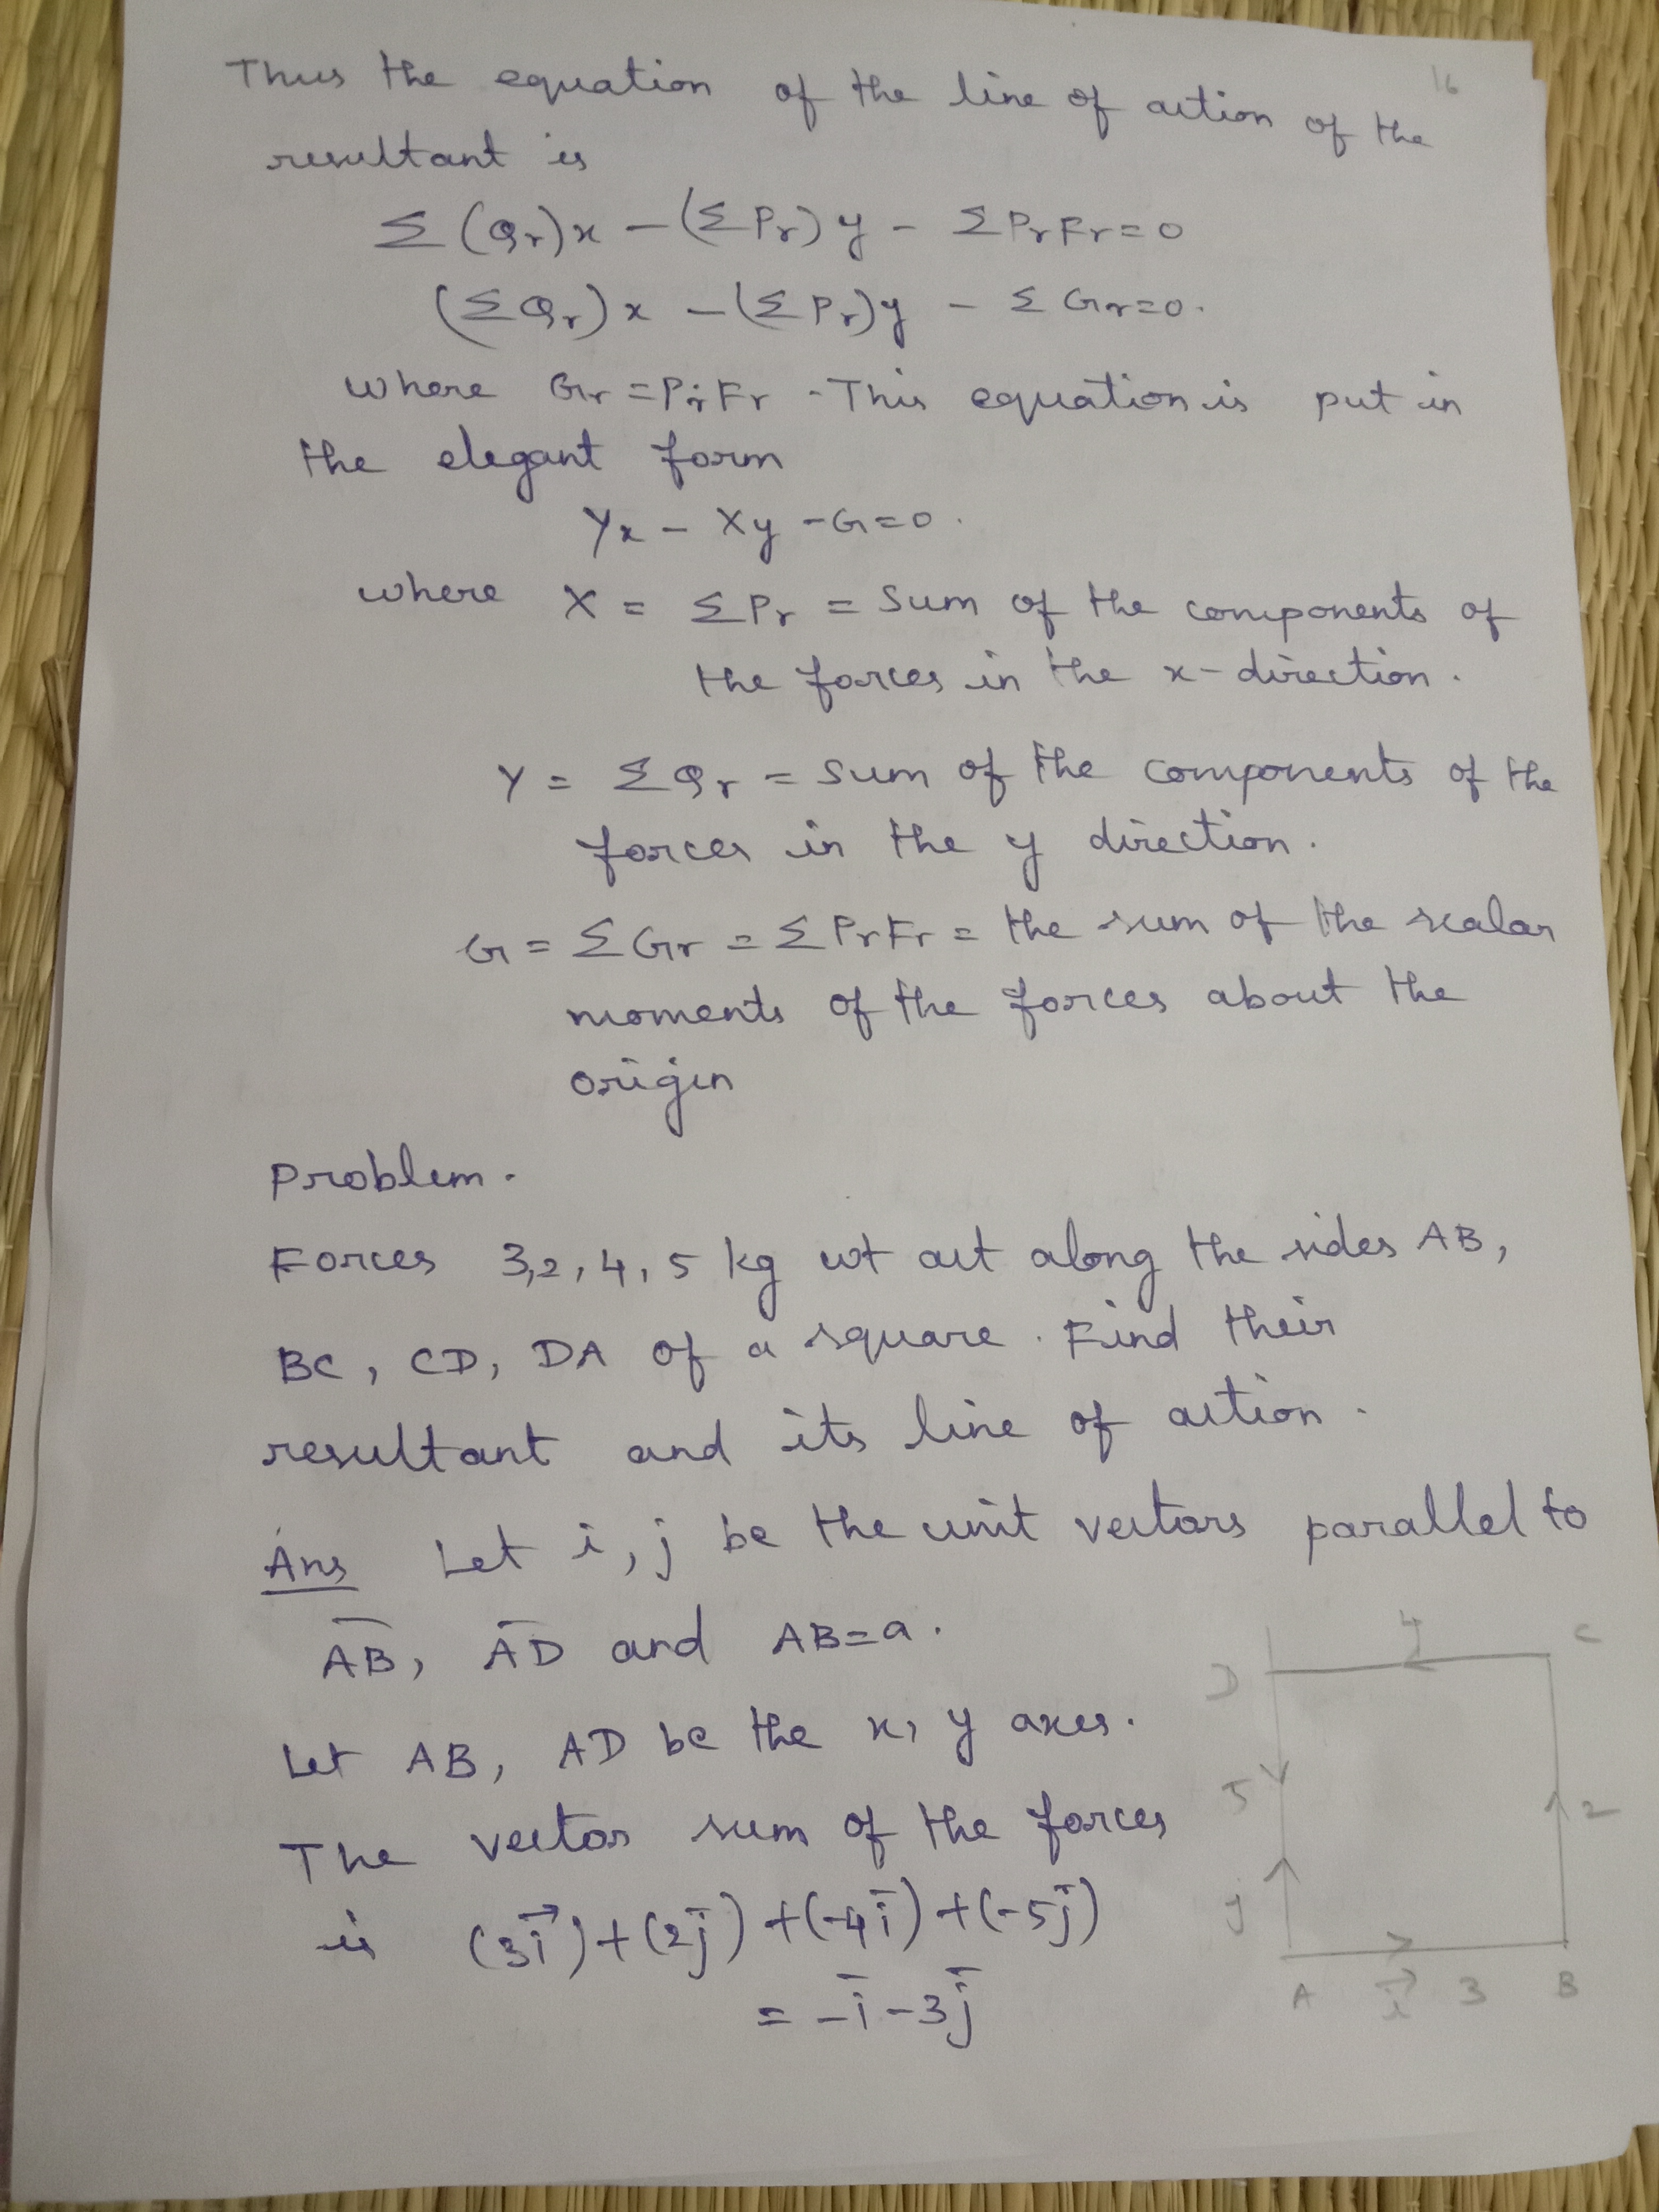 16
Thus the equation of the line of action of the
resultant is
Σ(Qr)x - (ΣPr)y - ΣPrFr=0
(ΣQr)x - (ΣPr)y - ΣGr=0.
where Gr=PrFr. This equation is put in
the elegant form
Yx - Xy - G=0.
where X = ΣPr = Sum of the components of
the forces in the x-direction.
Y = ΣQr = sum of the components of the
forces in the y direction.
G = ΣGr = ΣPrFr = the sum of the scalar
moments of the forces about the
origin
Problem.
Forces 3,2,4,5 kg wt act along the sides AB,
BC, CD, DA of a square. Find their
resultant and its line of action.
Ans Let i, j be the unit vectors parallel to
A̅B̅, A̅D̅ and AB=a.
Let AB, AD be the x, y axes.
The vector sum of the forces
is (3i⃗)+(2j̅)+(-4i̅)+(-5j̅)
= -i̅-3j̅
4
D C
5 2
j
A i⃗ 3 B